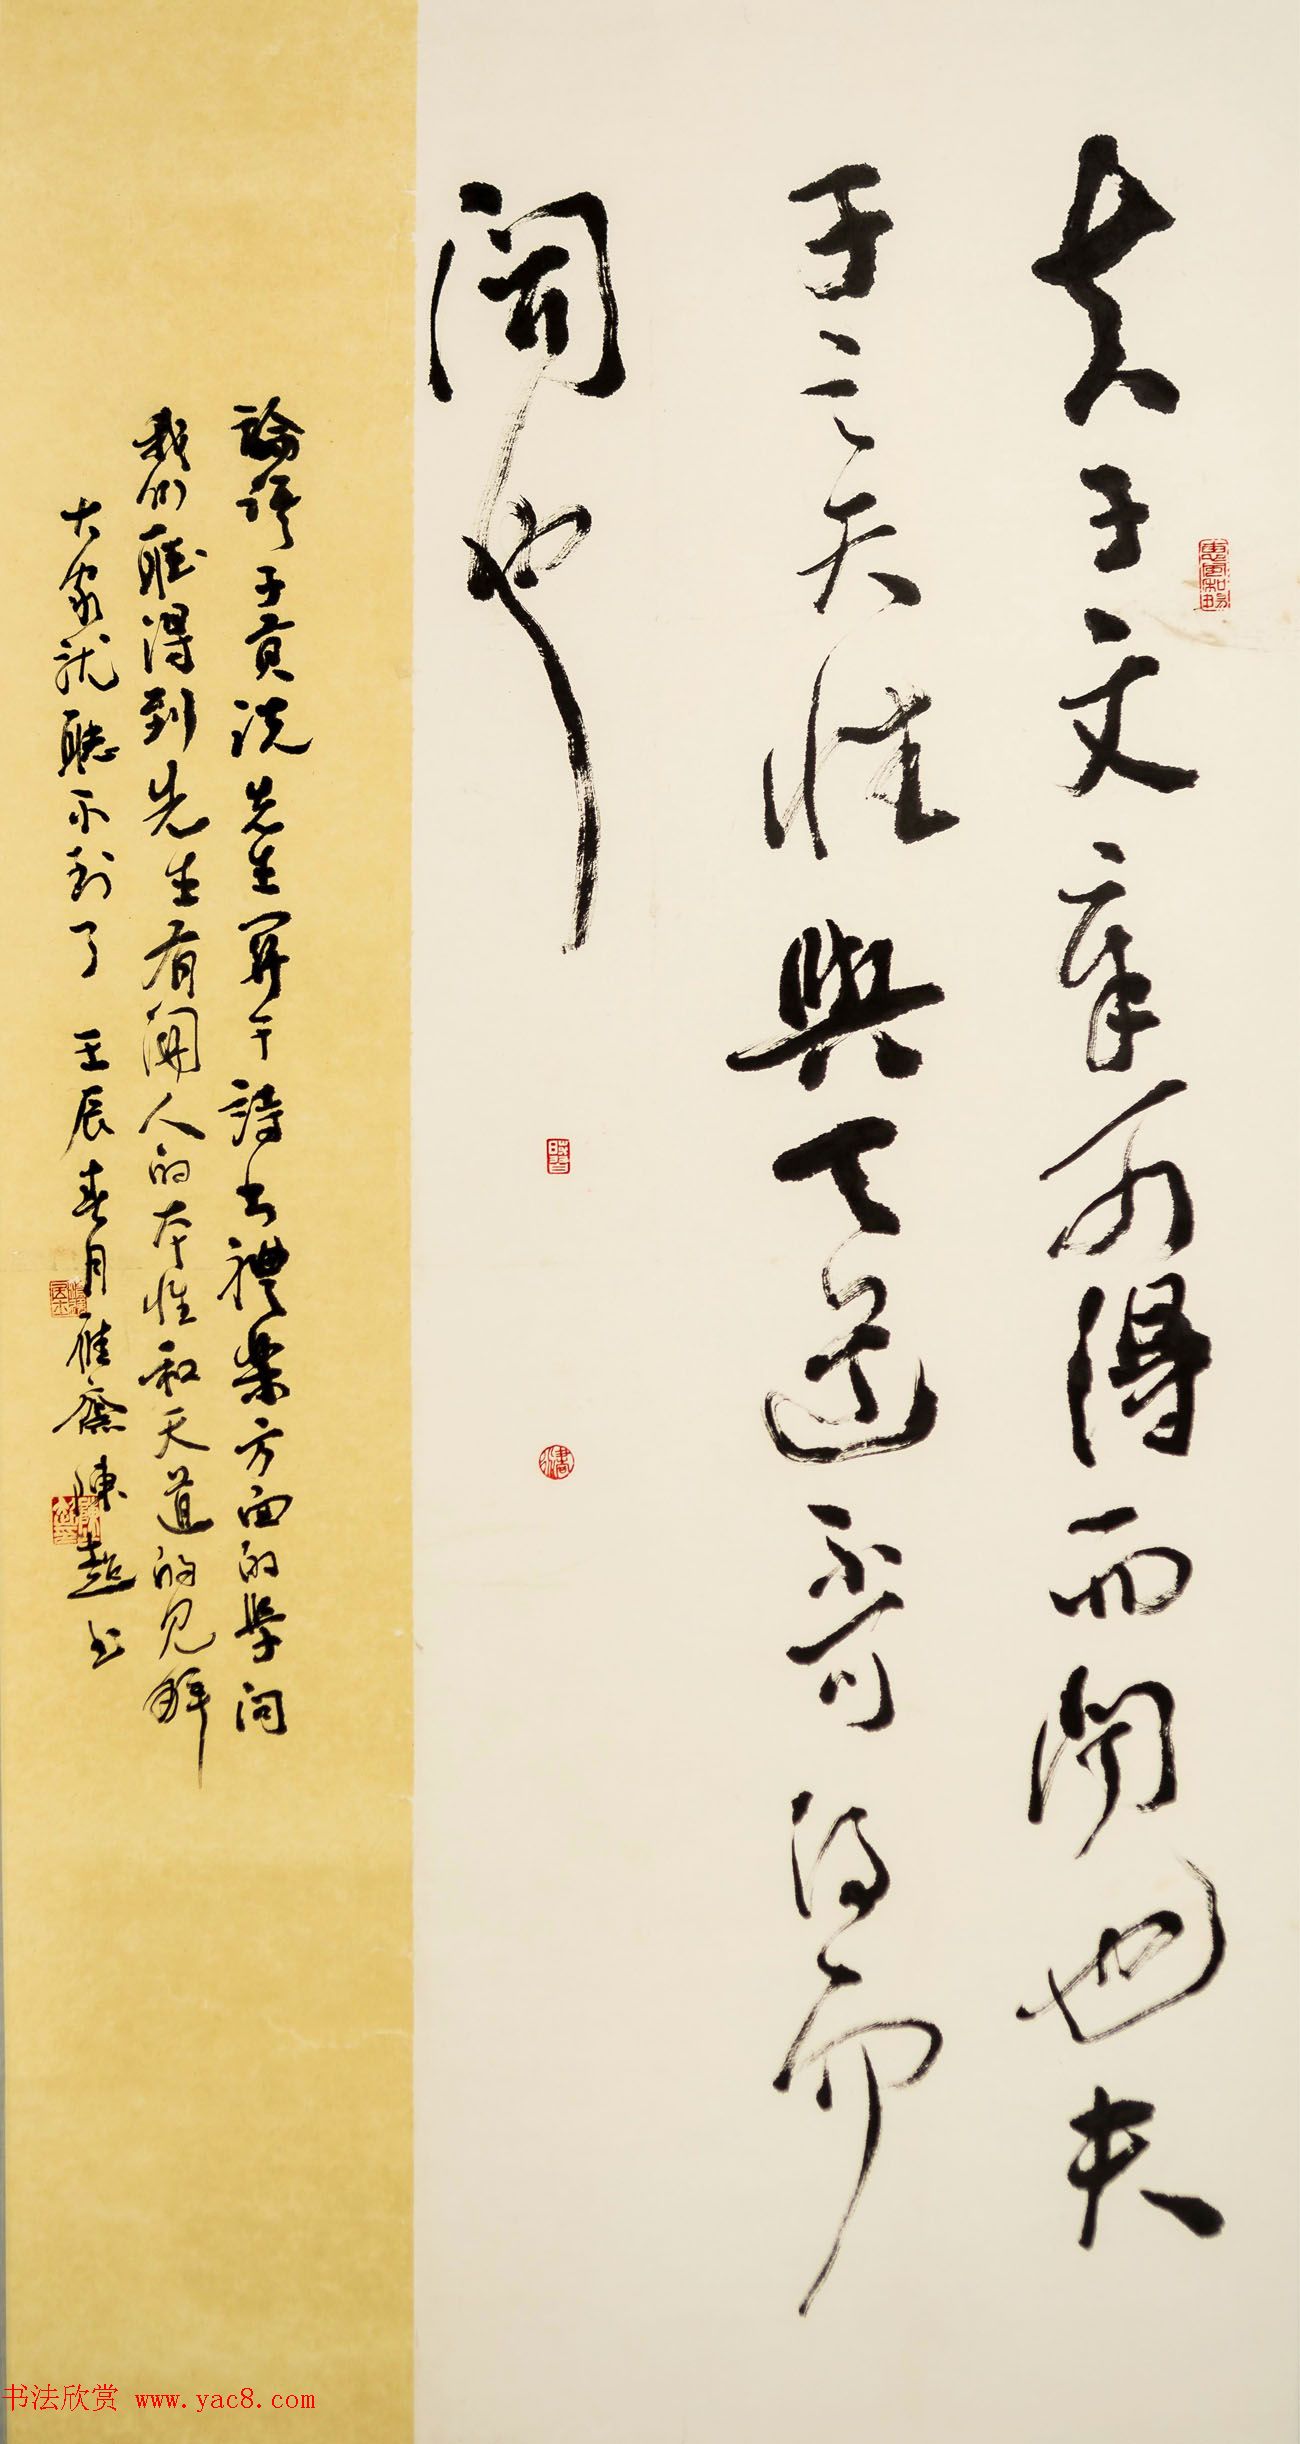 夫子文章可得而聞也夫
子之天性與天道不可得而
聞也
論語子貢説先生關于詩书禮樂方面的學問
我们聽得到先生有関人的本性和天道的见解
大家就聽不到了 壬辰春月 齋陳超书
惠風和暢
時習
书法欣赏 www.yac8.com